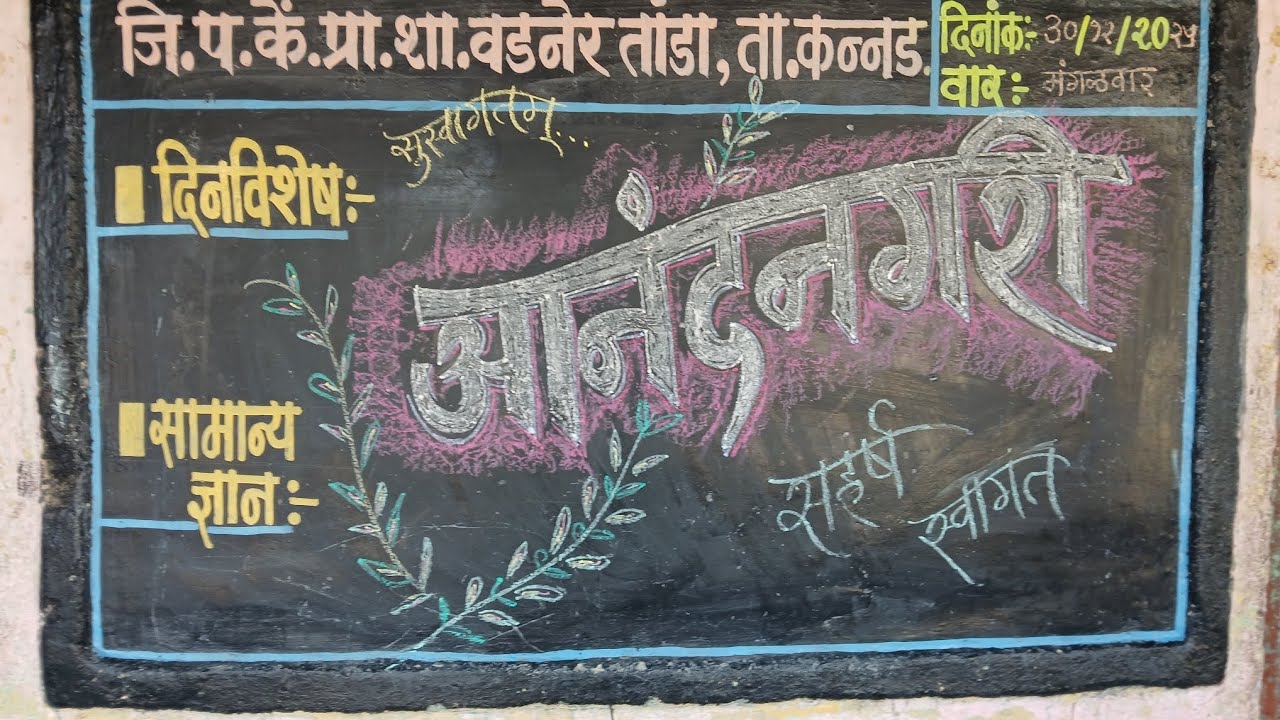 जि.प.कें.प्रा.शा.वडनेर तांडा, ता.कन्नड.
दिनांक:- ३०/१२/२०२५
वार:- मंगळवार
सुस्वागतम्..
दिनविशेष:-
आनंदनगरी
सामान्य
ज्ञान:-
सहर्ष
स्वागत